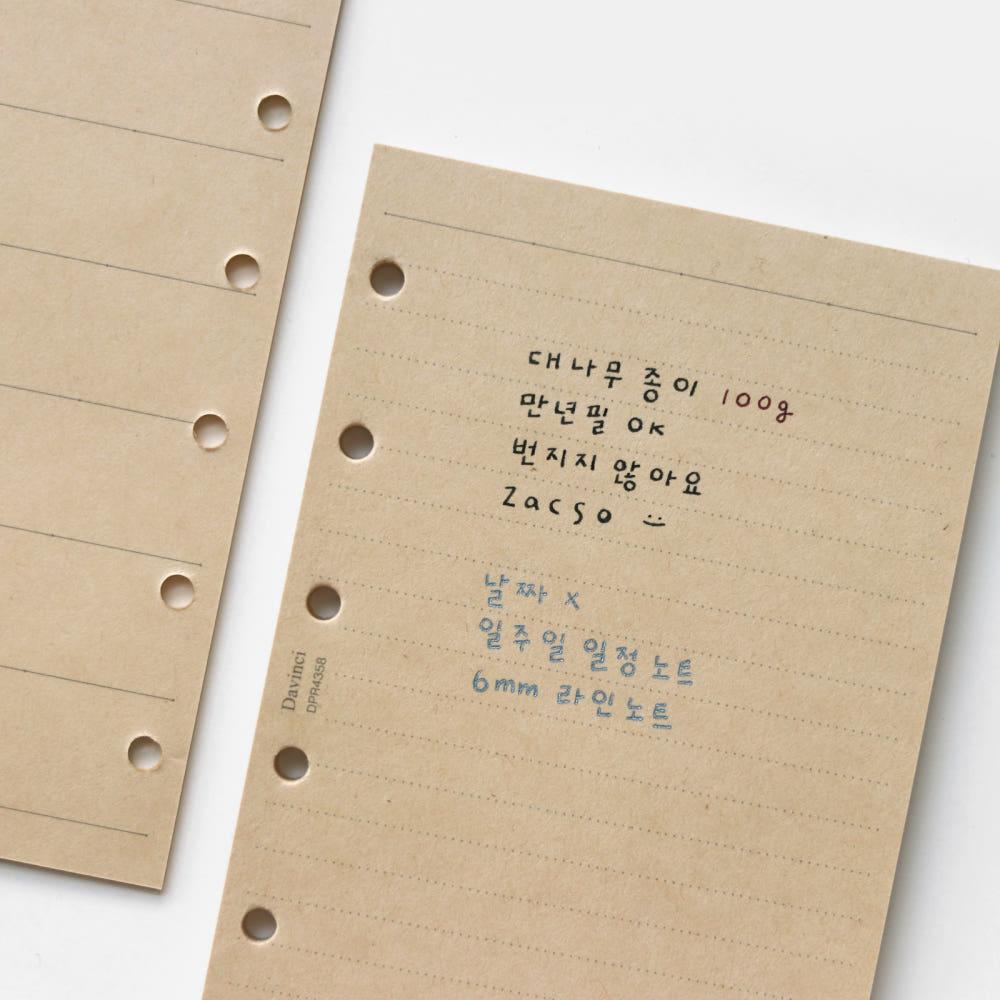 대나무 종이 100g
만년필 OK
번지지 않아요
Zacso :)
날짜 x
일주일 일정 노트
6mm 라인노트
Davinci
DPR4358